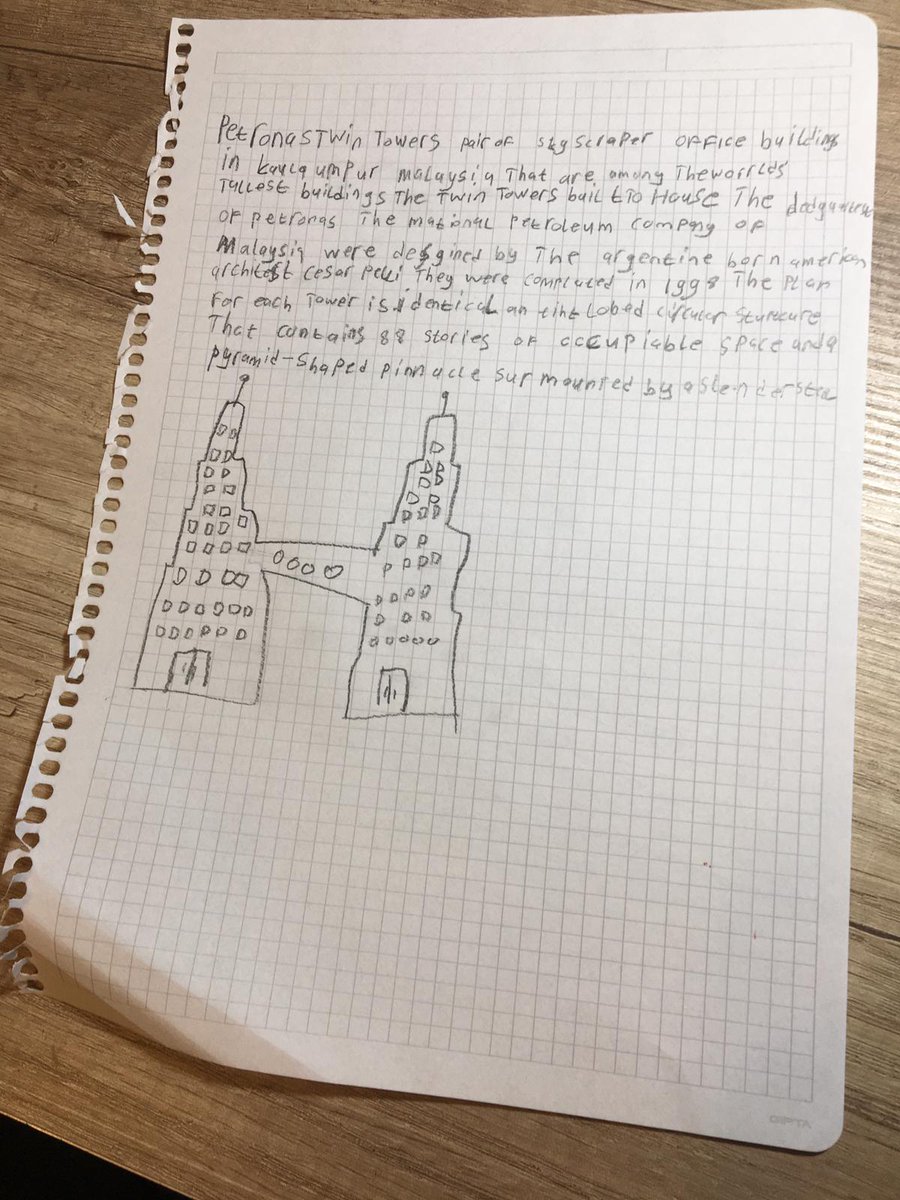 PetronasTwin Towers pair of skyscraper office building
in kaulaumpur malaysia That are among Theworlds
Tallest buildings The Twin Towers built To House The
of petronas The national petroleum company of
Malaysia were desgined by The argentine born american
architect cesar pelli They were completed in 1998 The plan
For each Tower is identical an lobed circular
That contains 88 stories of occupiable space and a
pyramid-shaped pinnacle surmounted by a slender
GIPTA